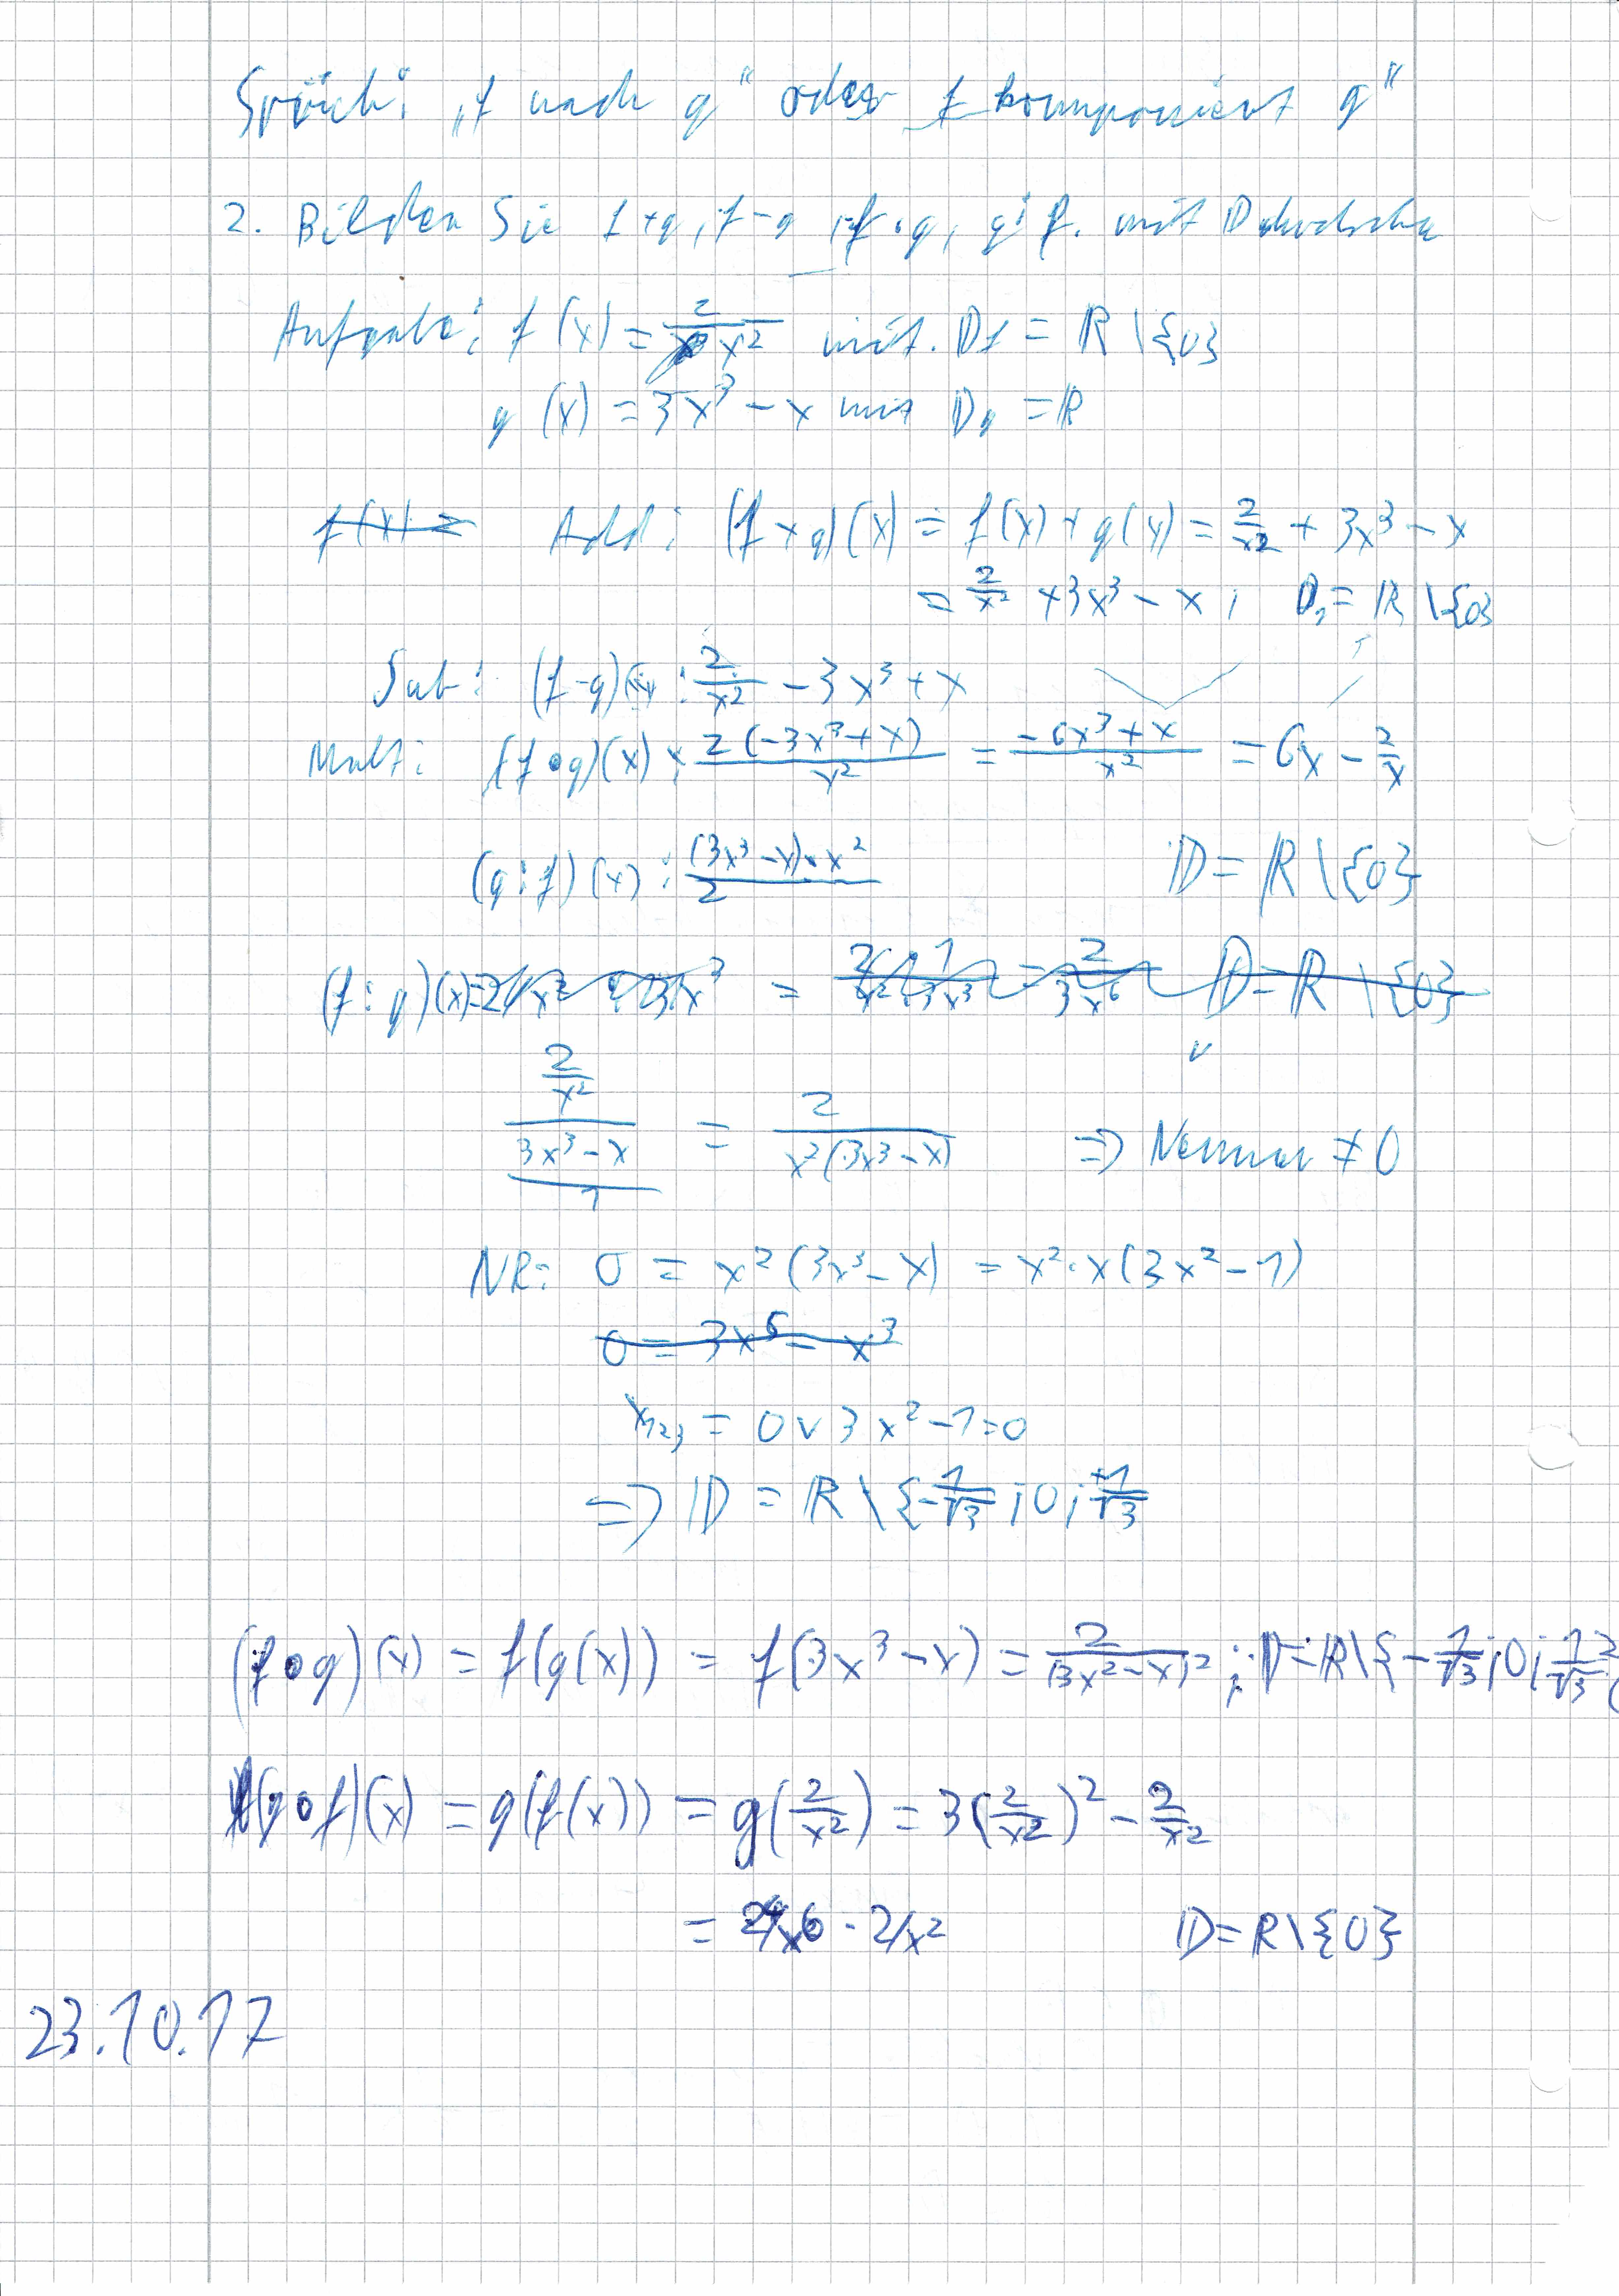 Sprich: „f nach g" oder f komponiert g"
2. Bilden Sie f+g, f-g, f·g, g:f. mit
Aufgabe: f(x) = 2/x² mit. Df = ℝ \ {0}
g(x) = 3x³ - x mit Dg = ℝ
f(x) = Add: (f+g)(x) = f(x) + g(x) = 2/x² + 3x³ - x
= 2/x² + 3x³ - x ; D, = ℝ \ {0}
Sub: (f-g)(x) : 2/x² - 3x³ + x
Mult: (f•g)(x) : 2(-3x³+x)/x² = -6x³+x/x² = 6x - 2/x
(g:f)(x) : (3x³-x)·x²/2 𝔻 = ℝ \ {0}
(f:g)(x) = 2/x² 3x³ = 2/x² · 1/3x³ = 2/3x⁶ 𝔻 = ℝ \ {0}
2/x² / 3x³-x / 1 = 2/x²(3x³-x) => Nenner ≠ 0
NR: 0 = x²(3x³-x) = x²·x(3x²-1)
0 = 3x⁵ - x³
x₁₂₃ = 0 ∨ 3x²-1=0
=> 𝔻 = ℝ \ {-1/√3 ; 0 ; +1/√3
(f∘g)(x) = f(g(x)) = f(3x³-x) = 2/(3x²-x)² ; 𝔻=ℝ\{-1/√3;0;1/√3}
(g∘f)(x) = g(f(x)) = g(2/x²) = 3(2/x²)² - 2/x²
= 24/x6 - 2/x² 𝔻=ℝ\{0}
23.10.17